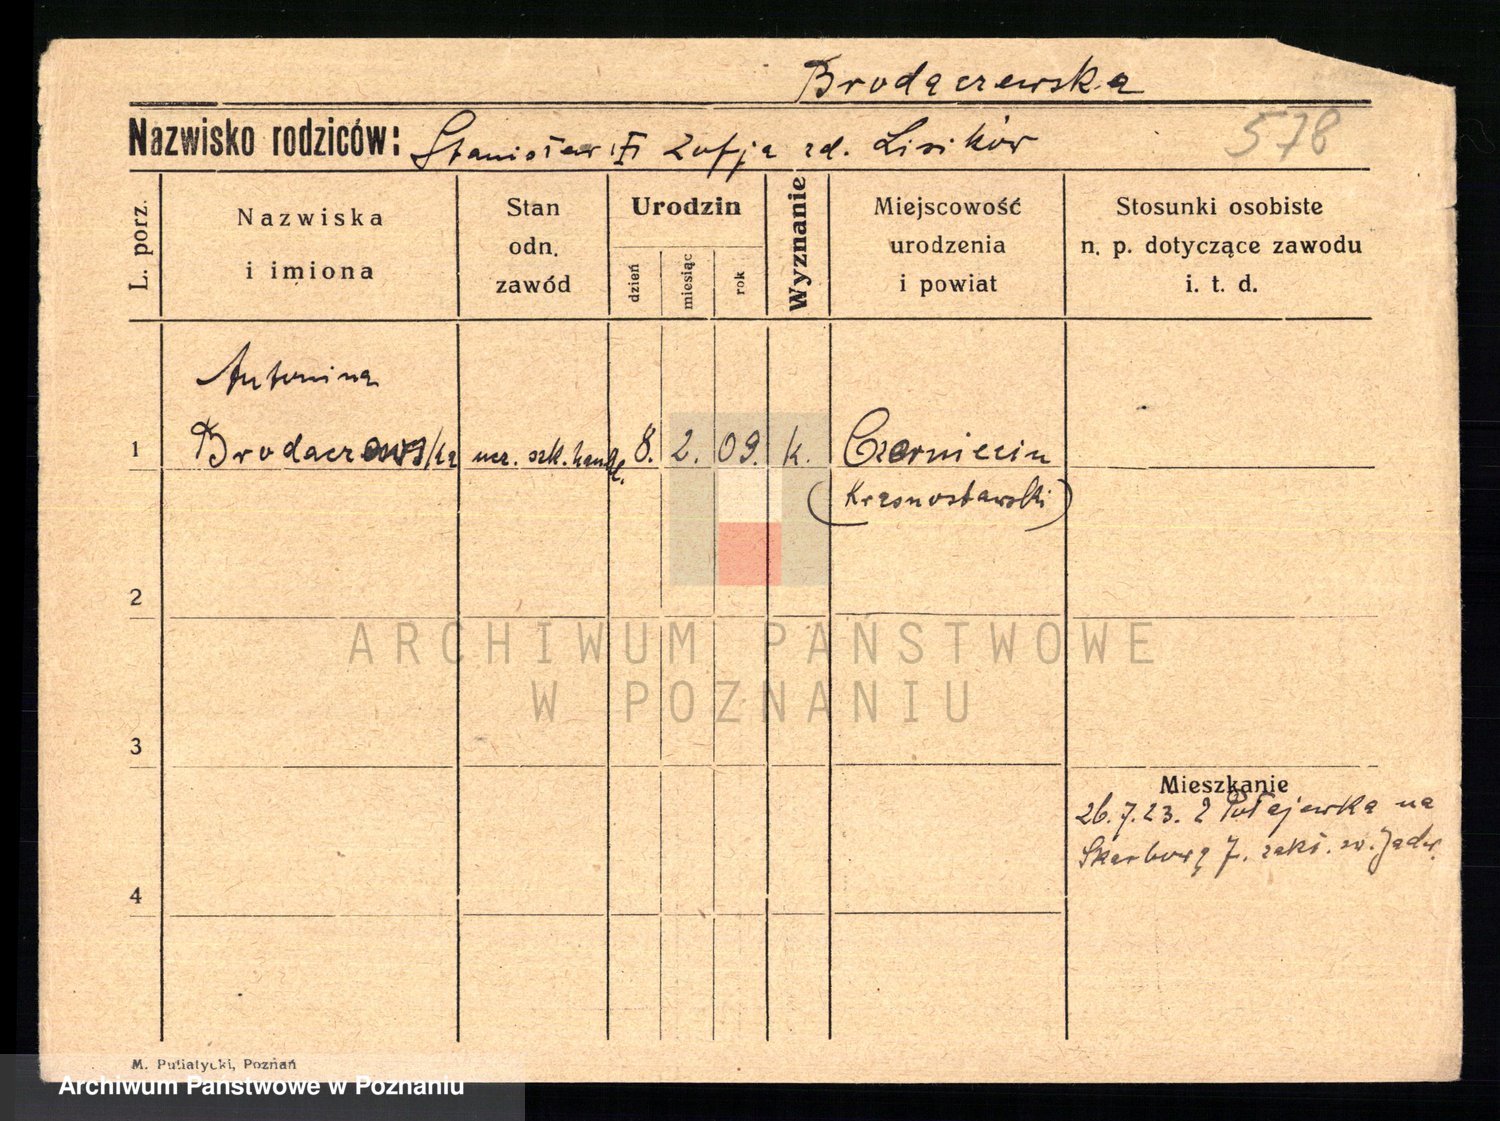 Brodaczewska
578
Nazwisko rodziców: Stanisław i Zofja zd. Lisików
L. porz.
Nazwiska
i imiona
Stan
odn.
zawód
Urodzin
dzień
miesiąc
rok
Wyznanie
Miejscowość
urodzenia
i powiat
Stosunki osobiste
n. p. dotyczące zawodu
i. t. d.
Antonina
1 Brodaczewska ucz. szk. handl. 8. 2. 09. k. Czerniecin
(Krasnostawski)
2
ARCHIWUM PAŃSTWOWE
W POZNANIU
3
Mieszkanie
26.7.23. z Połajewka na
Skarbową 7. zakł. św. Jadw.
4
M. Putiatycki, Poznań
Archiwum Państwowe w Poznaniu